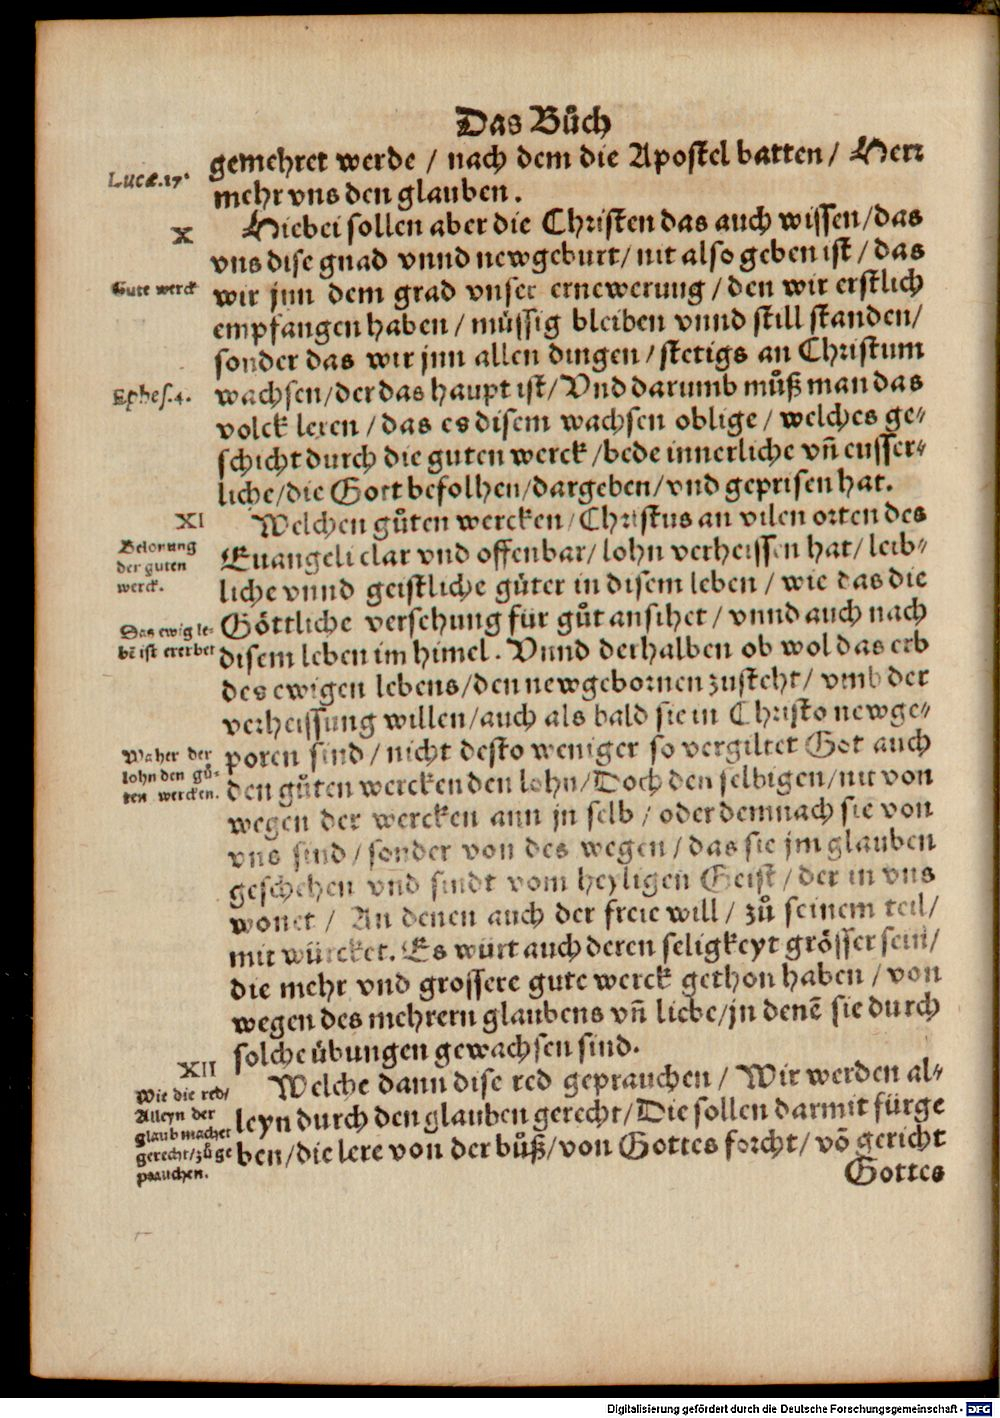 Das Bůch
gemehret werde / nach dem die Apostel batten / Herr
Lucæ.17.
mehr vns den glauben.
X
Hiebei sollen aber die Christen das auch wissen / das
vns dise gnad vnnd newgeburt / nit also geben ist / das
Gute werck
wir jnn dem grad vnser ernewerung / den wir erstlich
empfangen haben / müssig bleiben vnnd still standen /
sonder das wir jnn allen dingen / stetigs an Christum
Ephes.4.
wachsen / der das haupt ist / Vnd darumb můß man das
volck leren / das es disem wachsen oblige / welches ge-
schicht durch die guten werck / bede innerliche vñ eusser-
liche / die Gott befolhen / dargeben / vnd geprisen hat.
XI
Welchen gůten wercken / Christus an vilen orten des
Belonung
der guten
werck.
Euangeli clar vnd offenbar / lohn verheissen hat / leib-
liche vnnd geistliche güter in disem leben / wie das die
Das ewig le-
bē ist ererbet
Göttliche versehung für gůt ansihet / vnnd auch nach
disem leben im himel. Vnnd derhalben ob wol das erb
des ewigen lebens / den newgebornen zusteht / vmb der
verheissung willen / auch als bald sie in Christo newge-
Waher der
lohn den gů-
ten wercken.
poren sind / nicht desto weniger so vergiltet Got auch
den gůten wercken den lohn / Doch den selbigen / nit von
wegen der wercken ann jn selb / oder demnach sie von
vns sind / sonder von des wegen / das sie jm glauben
geschehen vnd sindt vom heyligen Geist / der in vns
wonet / An denen auch der freie will / zů seinem teil /
mit würcket. Es würt auch deren seligkeyt grösser sein /
die mehr vnd grossere gute werck gethon haben / von
wegen des mehrern glaubens vñ liebe / jn denē sie durch
solche übungen gewachsen sind.
XII
Wie die red /
Alleyn der
glaub machet
gerecht / zů ge
prauchen.
Welche dann dise red geprauchen / Wir werden al-
leyn durch den glauben gerecht / Die sollen darmit fürge
ben / die lere von der bůß / von Gottes forcht / vō gericht
Gottes
Digitalisierung gefördert durch die Deutsche Forschungsgemeinschaft - DFG